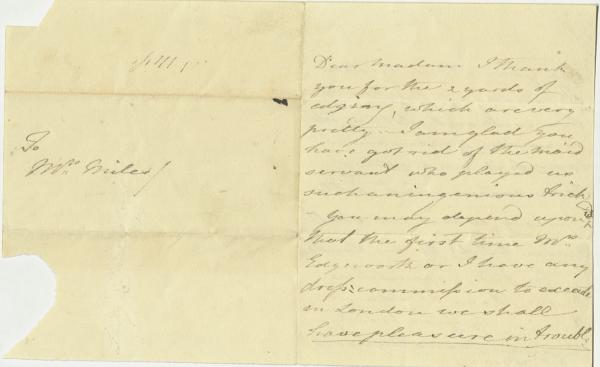 To
Mrs. Miles
Dear Madam I thank
you for the 2 yards of
edging, which are very
pretty - I am glad you
have got rid of the maid
servant who played us
such an ingenious trick
- You may depend upon
that the first time Mrs.
Edgeworth or I have any
dress commission to execute
in London we shall
have pleasure in troubl